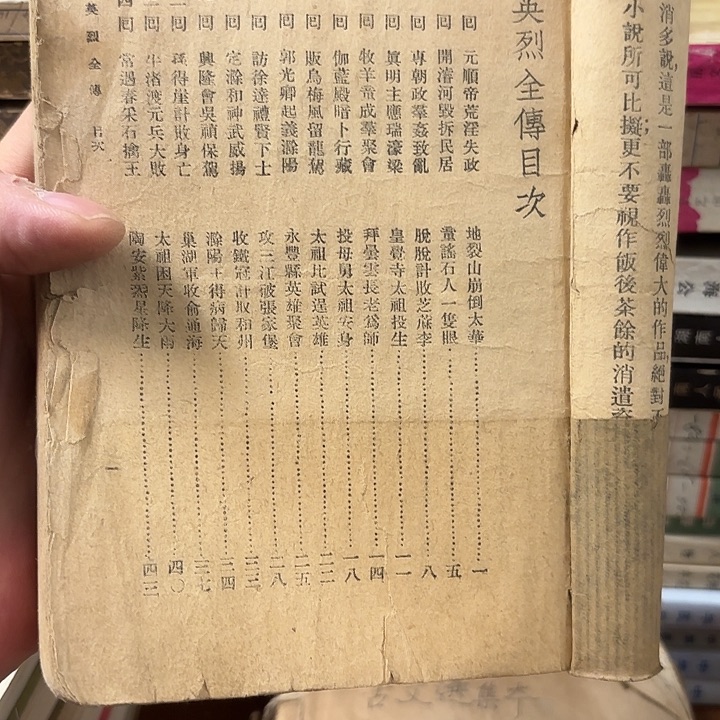 消多說,這是一部轟轟烈烈偉大的作品絕對
小說所可比擬更不要視作飯後茶餘的消遣
英烈全傳目次
回 元順帝荒淫失政 地裂山崩倒太華 一
回 開濬河毀拆民居 童謠石人一隻眼 五
回 專朝政羣姦致亂 脫脫計敗芝蔴李 八
回 眞明主應瑞濠梁 皇覺寺太祖投生 一一
回 牧羊童成羣聚會 拜曇雲長老爲師 一四
回 伽藍殿暗卜行藏 投母舅太祖安身 一八
回 販烏梅風留龍駕 太祖比試逞英雄 二二
回 郭光卿起義滁陽 永豐縣英雄聚會 二五
回 訪徐達禮賢下士 攻三江破張家堡 二八
回 定滁和神武威揚 收鐵冠計取和州
回 興隆會吳禎保駕 滁陽王得病歸天 三四
一回 孫得崖計敗身亡 巢湖軍收俞通海 三七
回 牛渚渡元兵大敗 太祖困天降大雨 四〇
四回 常遇春采石擒王 陶安紫炁星降生 四三
英烈全傳 目次
一